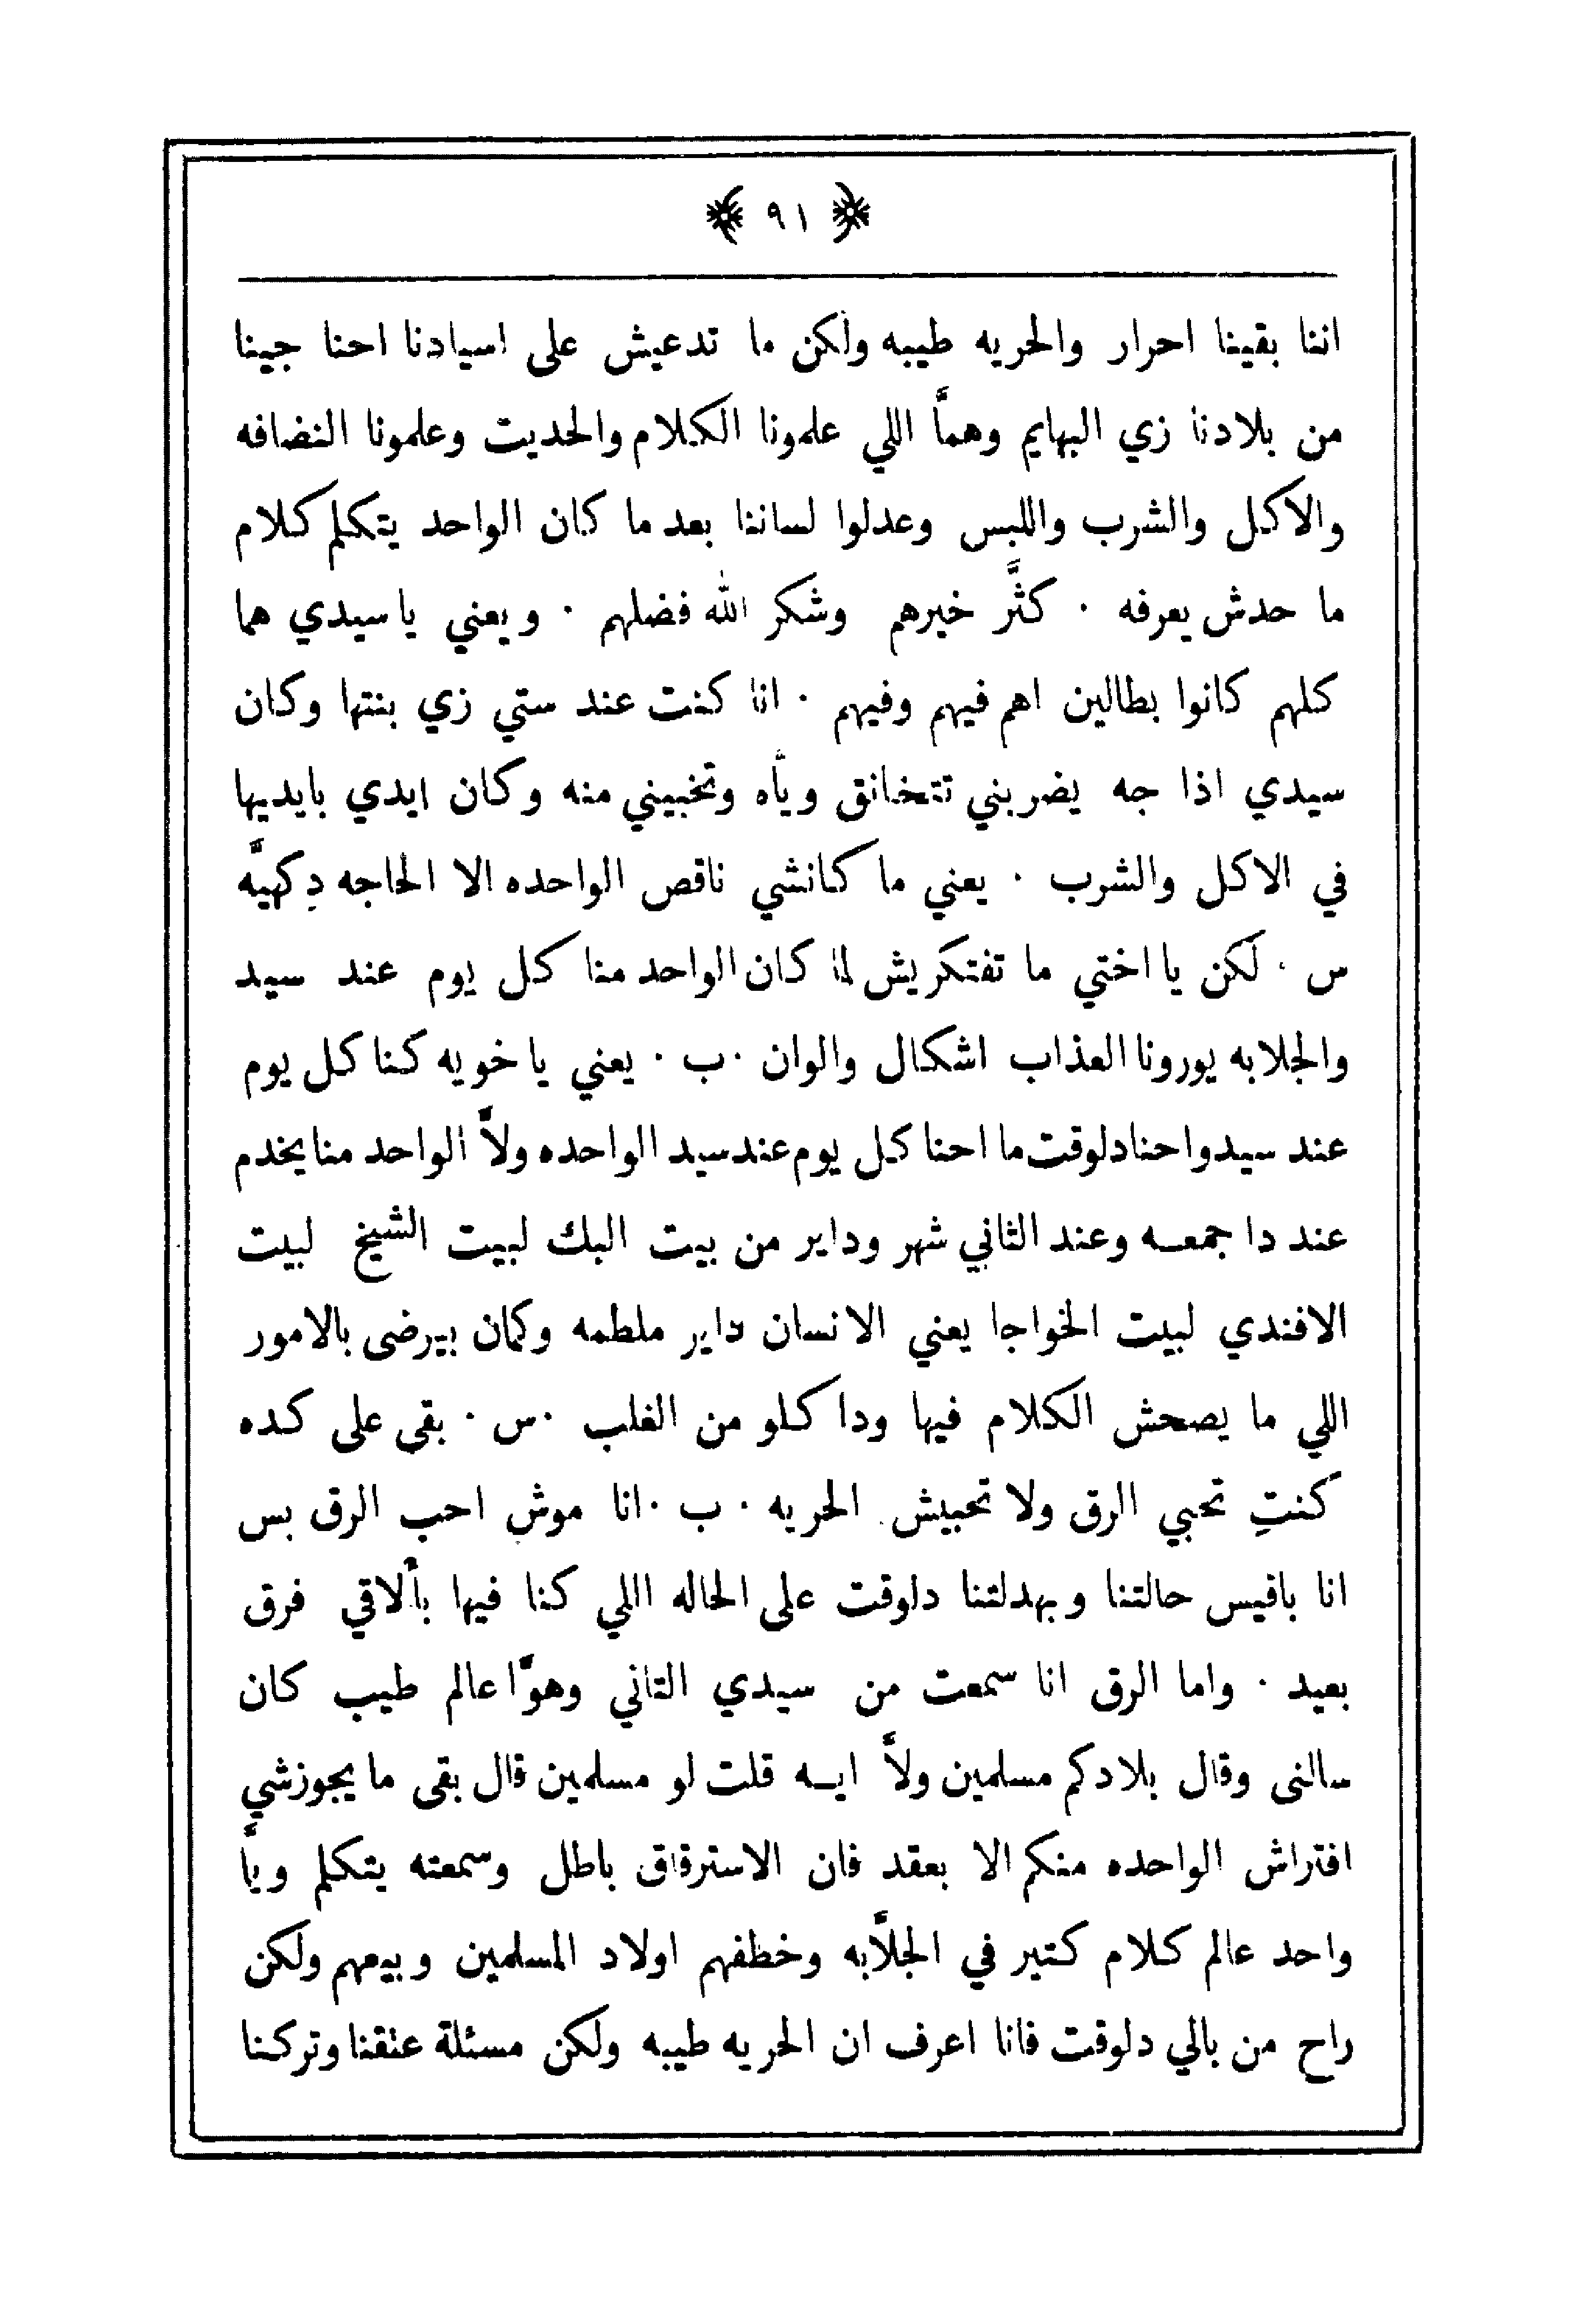 ﴿ ٩١ ﴾
اننا بقينا احرار والحريه طيبه ولكن ما تدعيش على اسيادنا احنا جينا
من بلادنا زي البهايم وهمَّا اللي علمونا الكلام والحديت وعلمونا النضافه
والاكل والشرب واللبس وعدلوا لساننا بعد ما كان الواحد يتكلم كلام
ما حدش يعرفه · كثَّر خيرهم وشكر الله فضلهم · ويعني يا سيدي هما
كلهم كانوا بطالين اهم فيهم وفيهم · انا كنت عند ستي زي بنتها وكان
سيدي اذا جه يضربني تتخانق ويَّاه وتخبيني منه وكان ايدي بايديها
في الاكل والشرب · يعني ما كانشي ناقص الواحده الا الحاجه دِكهيَّه
س · لكن يا اختي ما تفتكريش لما كان الواحد منا كل يوم عند سيد
والجلابه يورونا العذاب اشكال والوان · ب · يعني يا خويه كنا كل يوم
عند سيد واحنا دلوقت ما احنا كل يوم عند سيد الواحده ولاَّ الواحد منا يخدم
عند دا جمعه وعند الثاني شهر وداير من بيت البك لبيت الشيخ لبيت
الافندي لبيت الخواجا يعني الانسان داير ملطمه وكمان بيرضى بالامور
اللي ما يصحش الكلام فيها ودا كلو من الغلب · س · بقى على كده
كنتِ تحبي الرق ولا تحبيش الحريه · ب · انا موش احب الرق بس
انا باقيس حالتنا وبهدلتنا دلوقت على الحاله اللي كنا فيها بألاقي فرق
بعيد · واما الرق انا سمعت من سيدي التاني وهوَّا عالم طيب كان
سالنى وقال بلادكم مسلمين ولاَّ ايه قلت لو مسلمين قال بقى ما يجوزشي
افتراش الواحده منكم الا بعقد فان الاسترقاق باطل وسمعته يتكلم ويَّا
واحد عالم كلام كتير في الجلاَّبه وخطفهم اولاد المسلمين وبيعهم ولكن
راح من بالي دلوقت فانا اعرف ان الحريه طيبه ولكن مسئلة عتقنا وتركنا